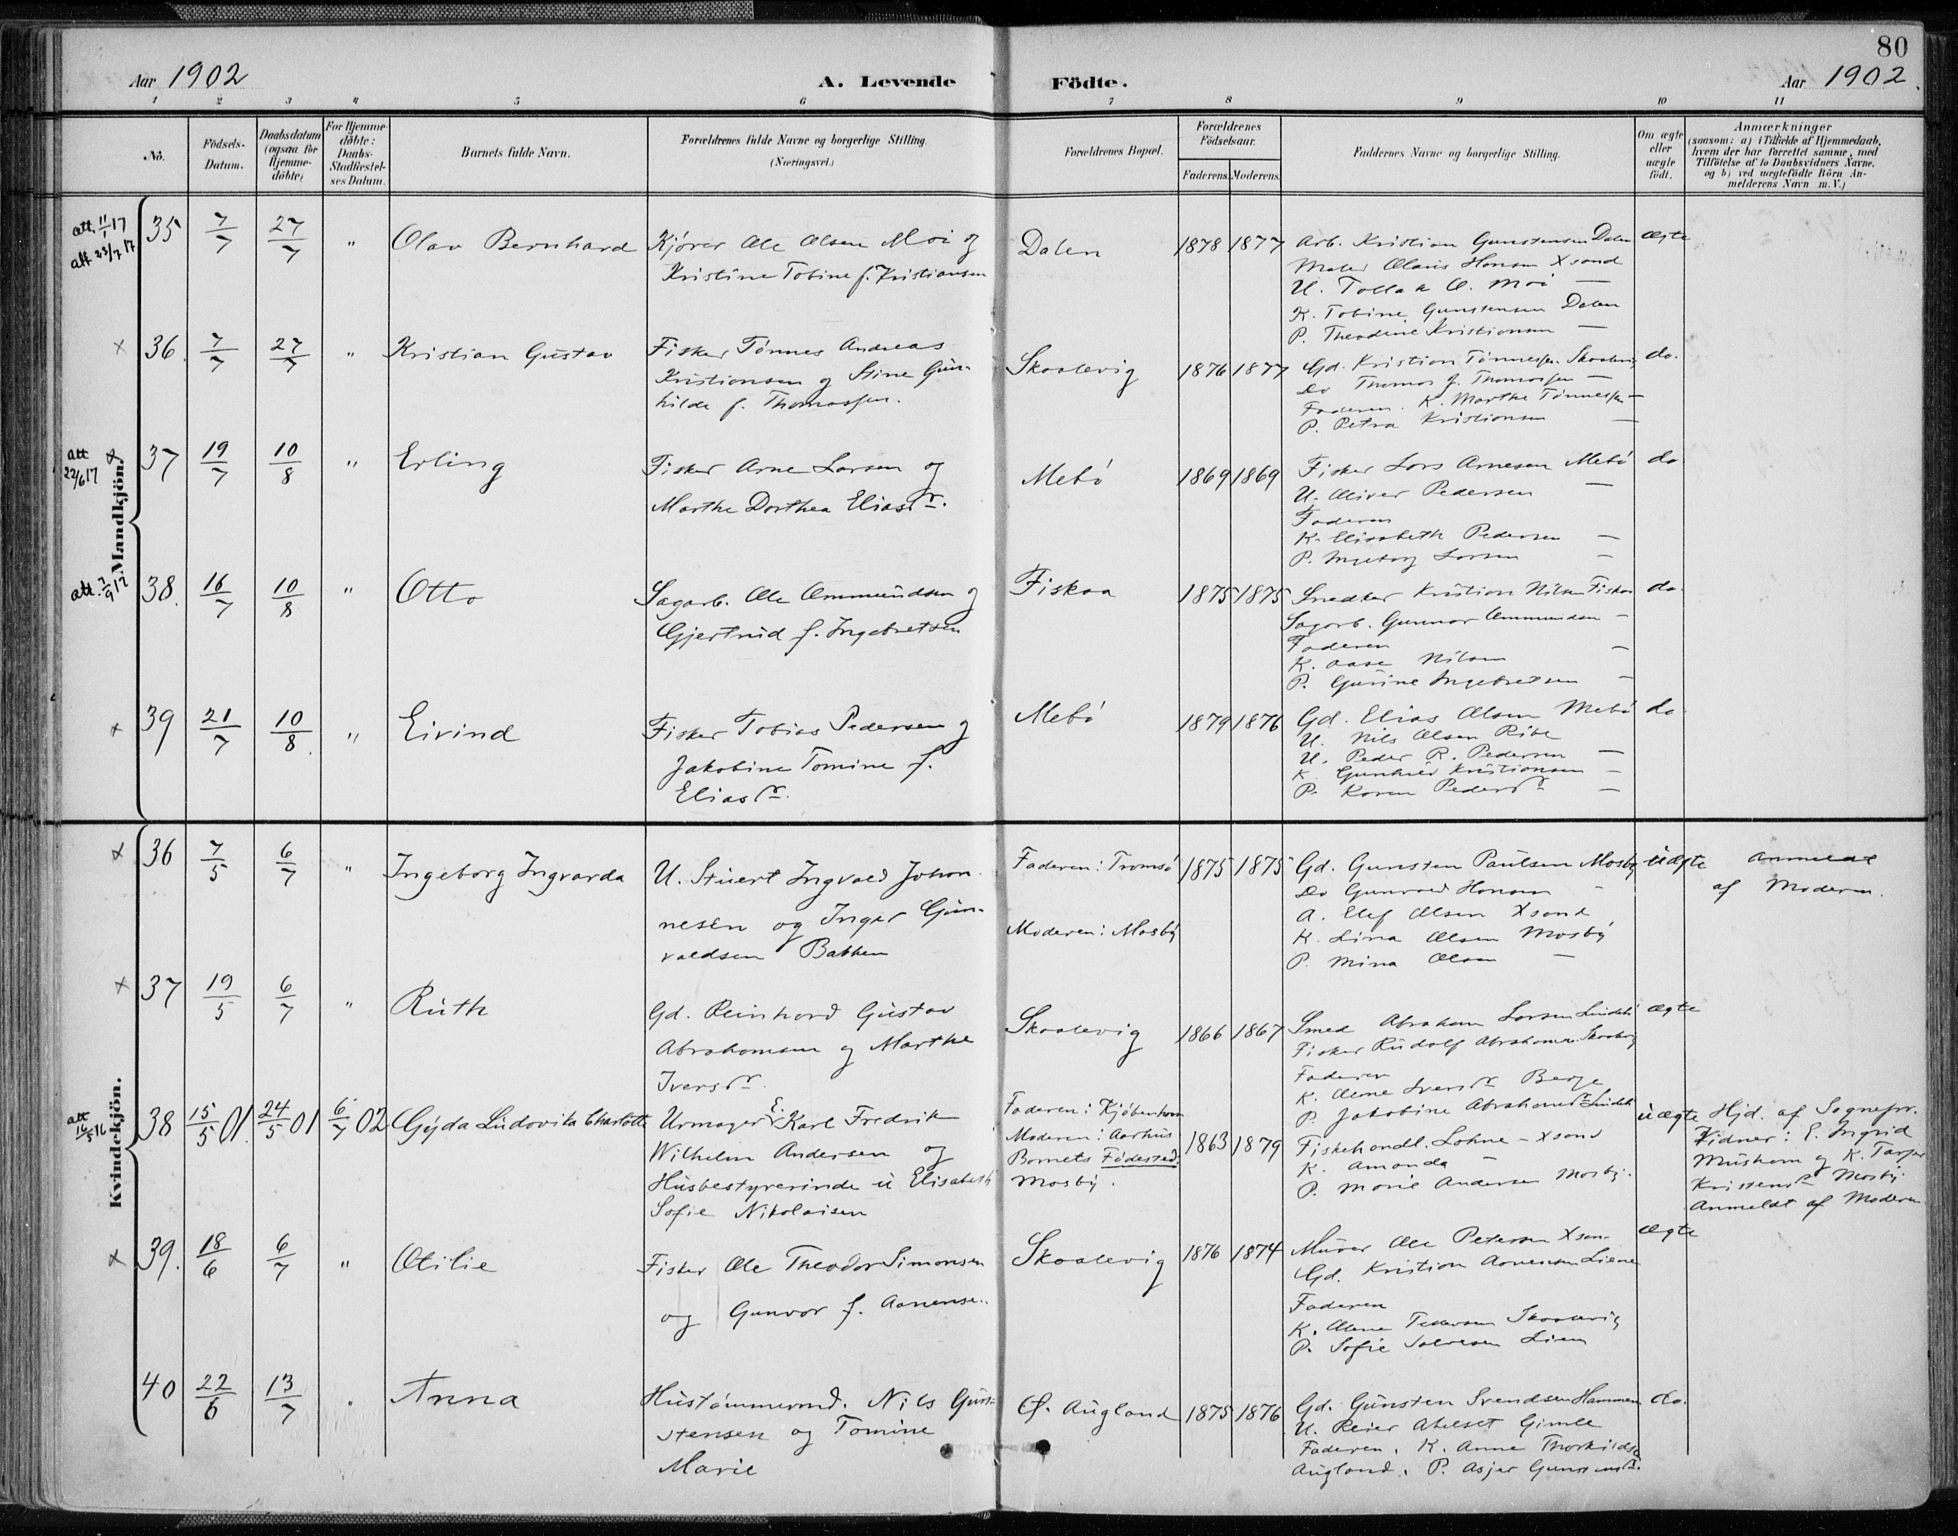 80
Aar 1902
A. Levende Födte.
Aar 1902.
1 2 3 4 5 6 7 8 9 10 11
No.
Födsels-
Datum.
Daabsdatum
(ogsaa for
Hjemme-
döbte)
For Hjemme-
döbte:
Daabs-
Stadfæstel-
ses Datum.
Barnets fulde Navn.
Forældrenes fulde Navne og borgerlige Stilling
(Næringsvei.)
Forældrenes Bopæl.
Forældrenes
Födselsaar.
Faderens. Moderens.
Faddernes Navne og borgerlige Stilling.
Om ægte
eller
uægte
födt.
Anmærkninger
(saasom: a) i Tilfælde af Hjemmedaab,
hvem der har forrettet samme, med
Tilföielse af to Daabsvidners Navne,
og b) ved uægtefödte Börn An-
melderens Navn m. V.)
Mandkjön.
att. 11/1 17
att 23/7 17
35 7/7 27/7 " Olav Bernhard
Kjører Ole Olsen Moi og
Kristine Tobine f. Kristiansen
Dalen 1878 1877
Arb. Kristian Gunstensen Dalen
Maler Olaus Hansen Xsand
U. Tollak O. Moi —
K. Tobine Gunstensen Dalen
P. Theodine Kristiansen —
ægte
x 36 7/7 27/7 " Kristian Gustav
Fisker Tønnes Andreas
Kristiansen og Stine Gun-
hilde f. Thomassen.
Skaalevig 1876 1877
Gd. Kristian Tønnessen Skaalevig
Do Thomas f. Thomassen —
Faderen. K. Marthe Tønnessen —
P. Petra Kristiansen —
do.
att 22/6 17 x
37 19/7 10/8 " Erling
Fisker Arne Larsen og
Marthe Dorthea Eliasdr.
Mebø 1869 1869
Fisker Lars Arnesen Mebø
U. Oliver Pedersen —
Faderen
K. Elisabeth Pedersen —
P. Ingeborg Larsen —
do
att. 7/9 17
38. 16/7 10/8 " Otto
Sagarb. Ole Ommundsen og
Gjertrud f. Ingebretsen
Fiskaa 1875 1875
Snedker Kristian Nilsen Fiskaa
Sagarb. Gunnar Ommundsen —
Faderen —
K. Aase Nilsen
P. Gurine Ingebretsen —
do.
x 39 21/7 10/8 " Eivind
Fisker Tobias Pedersen og
Jakobine Tomine f.
Eliasdr.
Mebø 1879 1876
Gd. Elias Olsen Mebø
U. Nils Olsen Ribe
U. Peder R. Pedersen —
K. Gunhild Kristiansen —
P. Karen Pedersdr —
do
Kvindekjön.
x 36 7/5 6/7 " Ingeborg Ingvarda
U. Stuert Ingvald Johan-
nesen og Inger Gun-
valdsen Bakken
Faderen: Tromsø
Moderen: Mosby
1875 1875
Gd. Gunsten Paulsen Mosby
Do Gunvald Hansen "
A. Elef Olsen Xsand
K. Lina Olsen Mosby
P. Mina Olsen —
uægte
Anmeldt
af Moderen.
x 37 19/5 6/7 " Ruth
Gd. Reinhard Gustav
Abrahamsen og Marthe
Iversdr.
Skaalevig 1866 1867
Smed Abraham Larsen
Fisker Rudolf Abrahamsen
Faderen
K. Iversdr Berge
P. Jakobine
ægte
att 16/5 16
38 15/5 01. 24/5 01 6/7 02 Gyda Ludovika Charlotte
Urmager E. Karl Fredrik
Wilhelm Andersen og
Husbestyrerinde u Elisabeth
Sofie Nikolaisen
Faderen: Kjøbenhavn
Moderen: Aarhus
Barnets Fødested:
Mosby.
1863 1879
Fiskehandl. Lohne — Xsand
K. Amanda —
P. Marie Andersen Mosby.
uægte
Hjd. af Sognepr.
Vidner: E. Ingrid
og K.
Mosby
Anmeldt af Moderen
x 39. 18/6 6/7 " Otilie
Fisker Ole Theodor Simonsen
og Gunvor f. Aanense.
Skaalevig 1876 1874
Murer Ole Petersen Xsan.
Gd. Kristian Aanensen Liene
Faderen
K. Skaalevig
P. Sofie Lien
ægte
40 22/6 13/7 " Anna
Hustømmermd. Nils Gun-
stensen og Tomine
Marie
Ø. Augland 1875 1876
Gd. Gunsten Svendsen Hammen
U. Reier Gimle
Faderen. K. Anne
Augland. P. Asjer
do.